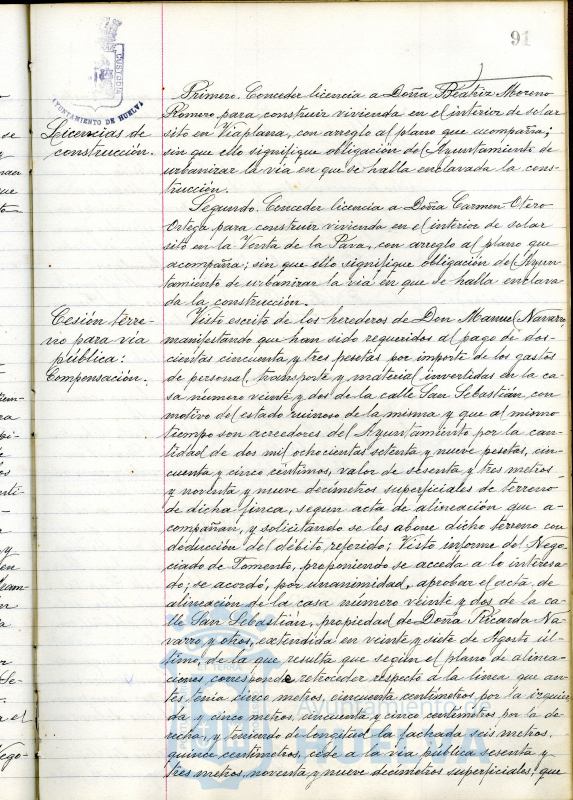 91
CUSTODIA
AYUNTAMIENTO DE HUELVA
Licencias de
construcción.
Primero. Conceder licencia a Doña Beatriz Moreno
Romero para construir vivienda en el interior de solar
sito en Viaplana, con arreglo al plano que acompaña;
sin que ello signifique obligación del Ayuntamiento de
urbanizar la via en que se halla enclavada la cons-
trucción.
Segundo. Conceder licencia a Doña Carmen Otero
Ortega para construir vivienda en el interior de solar
sito en la Venta de la Pava, con arreglo al plano que
acompaña; sin que ello signifique obligación del Ayun-
tamiento de urbanizar la via en que se halla enclava
da la construcción.
Cesión terre-
no para via
pública:
Compensación.
Visto escrito de los herederos de Don Manuel Navarro,
manifestando que han sido requeridos al pago de dos-
cientas cincuenta y tres pesetas por importe de los gastos
de personal, transporte y material invertidas en la ca-
sa número veinte y dos de la calle San Sebastián, con
motivo del estado ruinoso de la misma y que al mismo
tiempo son acreedores del Ayuntamiento por la can-
tidad de dos mil ochocientas setenta y nueve pesetas, cin-
cuenta y cinco céntimos, valor de sesenta y tres metros
y noventa y nueve decímetros superficiales de terreno
de dicha finca, segun acta de alineación que a-
compañan, y solicitando se les abone dicho terreno con
deducción del débito referido; Visto informe del Nego-
ciado de Fomento, proponiendo se acceda a lo interesa
do; se acordó, por unanimidad, aprobar el acta de
alineación de la casa número veinte y dos de la ca-
lle San Sebastián, propiedad de Doña Ricarda Na-
varro y otros, extendida en veinte y siete de Agosto úl-
timo, de la que resulta que según el plano de alinea-
ciones corresponde retroceder respecto a la linea que an-
tes tenia cinco metros, cincuenta centímetros por la izquier
da y cinco metros, cincuenta y cinco centímetros por la de-
recha, y teniendo de longitud la fachada seis metros,
quince centímetros, cede a la via pública sesenta y
tres metros, noventa y nueve decímetros superficiales; que
Ayuntamiento de